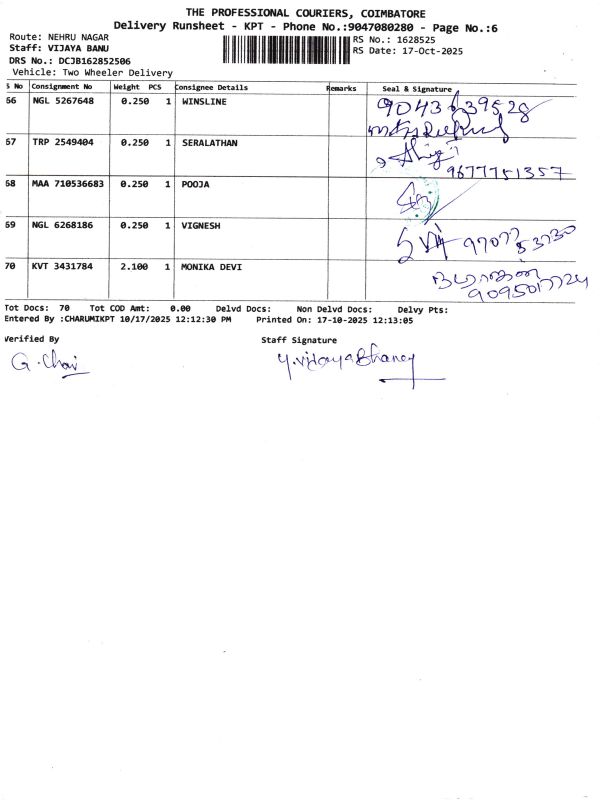 THE PROFESSIONAL COURIERS, COIMBATORE
Delivery Runsheet - KPT - Phone No.:9047080280 - Page No.:6
Route: NEHRU NAGAR
Staff: VIJAYA BANU
DRS No.: DCJB162852506
Vehicle: Two Wheeler Delivery
RS No.: 1628525
RS Date: 17-Oct-2025
S No Consignment No Weight PCS Consignee Details Remarks Seal & Signature
66 NGL 5267648 0.250 1 WINSLINE
67 TRP 2549404 0.250 1 SERALATHAN
9677751357
68 MAA 710536683 0.250 1 POOJA
69 NGL 6268186 0.250 1 VIGNESH
70 KVT 3431784 2.100 1 MONIKA DEVI
Tot Docs: 70 Tot COD Amt: 0.00 Delvd Docs: Non Delvd Docs: Delvy Pts:
Entered By :CHARUMIKPT 10/17/2025 12:12:30 PM Printed On: 17-10-2025 12:13:05
Verified By Staff Signature